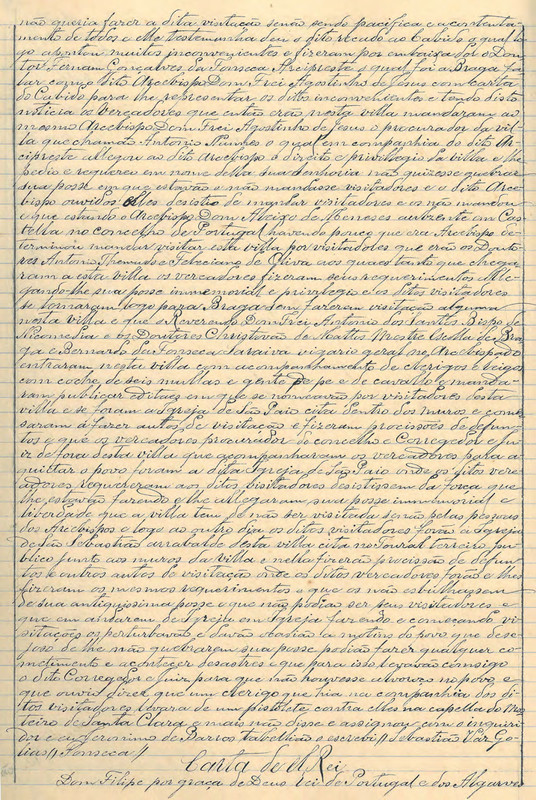 não queria fazer a dita visitação senão sendo pacifica e a contenta-
mento de todos e elle testemunha deu o dito recado ao Cabido o qual lo-
go apontou muitos inconvenientes e fizeram por embaixador o Dou-
tor Fernam Gonçalves da Fonseca Arcipreste o qual foi a Braga fa-
lar com o dito Arcebispo Dom Frei Agostinho de Jesus com carta
do Cabido para lhe representar os ditos inconvenientes e tendo disto
noticia os Vereadores que então erão nesta villa mandaram ao
mesmo Arcebispo Dom Frei Agostinho de Jesus o procurador da vil-
la que chamão Antonio Nunes o qual em companhia do dito Ar-
cipreste allegou ao dito Arcebispo o direito e privilegio da villa e lhe
pedio e requereu em nome della sua senhoria não quizesse quebrar
sua posse em que estavão e não mandasse visitadores e o dito Arce-
bispo ouvidos elles desistio de mandar visitadores e os não mandou
e que estando o Arcebispo Dom Aleixo de Meneses auzente em Cas-
tella no concelho de Portugal havendo pouco que era Arcebispo de-
terminou mandar visitar esta villa por visitadores que erão os Douto-
res Antonio Themudo e Feleciano de Oliva aos quaes tanto que chega-
ram a esta villa os vereadores fizeram seus requerimentos alle-
gando-lhe sua posse immemorial e privilegio e os ditos visitadores
se tornaram logo para Braga sem fazerem visitação alguma
nesta villa e que o Reverendo Dom Frei Antonio dos Santos Bispo de
Nicomedia e os Doutores Christovão de Mattos Mestre Escolla de Bra-
ga e Bernardo da Fonseca Saraiva vigario geral no Arcebispado
entraram nesta villa com acompanhamento de clerigos e leigos
com coche de seis mullas e gente de pe e de cavallo e manda-
ram publicar editaes em que se nomeavão por visitadores desta
villa e se foram a Igreja de São Paio cita dentro dos muros e come-
saram a fazer autos de visitação e fizeram procissões de defun-
tos e que os vereadores procurador do concelho e Corregedor e ju-
iz de fora desta villa que acompanharam os vereadores para a-
quietar o povo foram a dita Igreja de São Paio onde os ditos vere-
adores requereram aos ditos visitadores desistissem da força que
lhe estavão fazendo e lhe allegaram sua posse immemorial e
liberdade que a villa tem de não ser visitada senão pelas pessoas
dos Arcebispos e logo ao outro dia os ditos visitadores forão a Igreja
de São Sebastião arrabalde desta villa cita no Toural terreiro pu-
blico junto aos muros da villa e nella fizerão procissão de defun-
tos e outros autos de visitação onde os ditos vereadores forão e lhes
fizeram os mesmos requerimentos e que os não esbulhassem
de sua antiquissima posse e que não podião ser seus visitadores e
que em andarem de Igreja em Igreja fazendo e comesando vi-
sitações os perturbavão e davão ocazião a motins do povo que dese-
joso de lhe não quebrarem sua posse podião fazer qualquer co-
metimento e acontecer desastres e que para isso levavão comsigo
o dito Corregedor e juiz para que não houvesse alvoroço no povo e
que ouviu dizer que um clerigo que hia na companhia dos di-
tos visitadores uzara de um pistolete contra elles na capella do Mos-
teiro de Santa Clara e mais não disse e assignou com o inqueri-
dor e eu Jeronimo de Barros tabellião o escrevi // Sebastião Vaz Go-
lias // Fonseca //
Carta de El Rei
Dom Filipe por graça de Deus rei de Portugal e dos Algarves